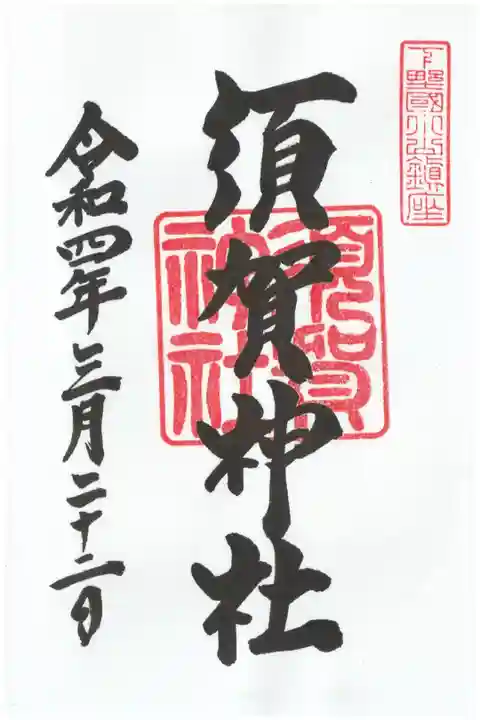 下野國小山鎮座
須賀神社
須賀神社
令和四年三月二十二日